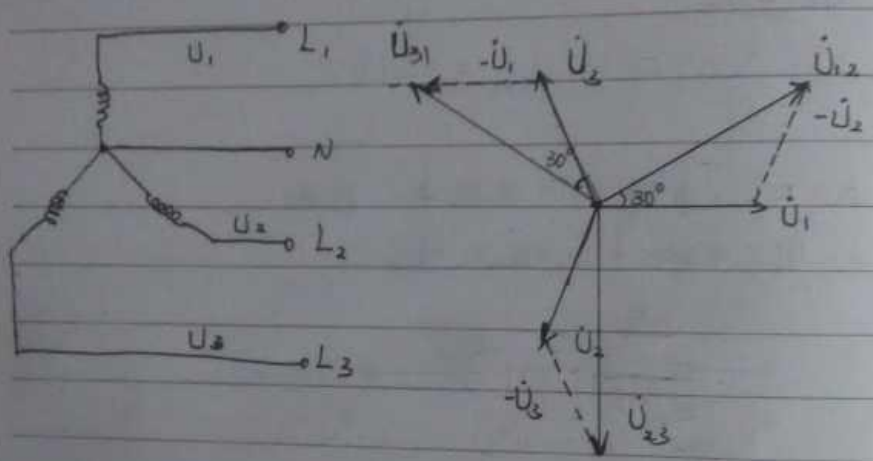 U₁ L₁
N
U₂ L₂
U₃ L₃
U̇₃₁ -U̇₁ U̇₃ U̇₁₂
-U̇₂
30° 30° U̇₁
U̇₂
-U̇₃ U̇₂₃